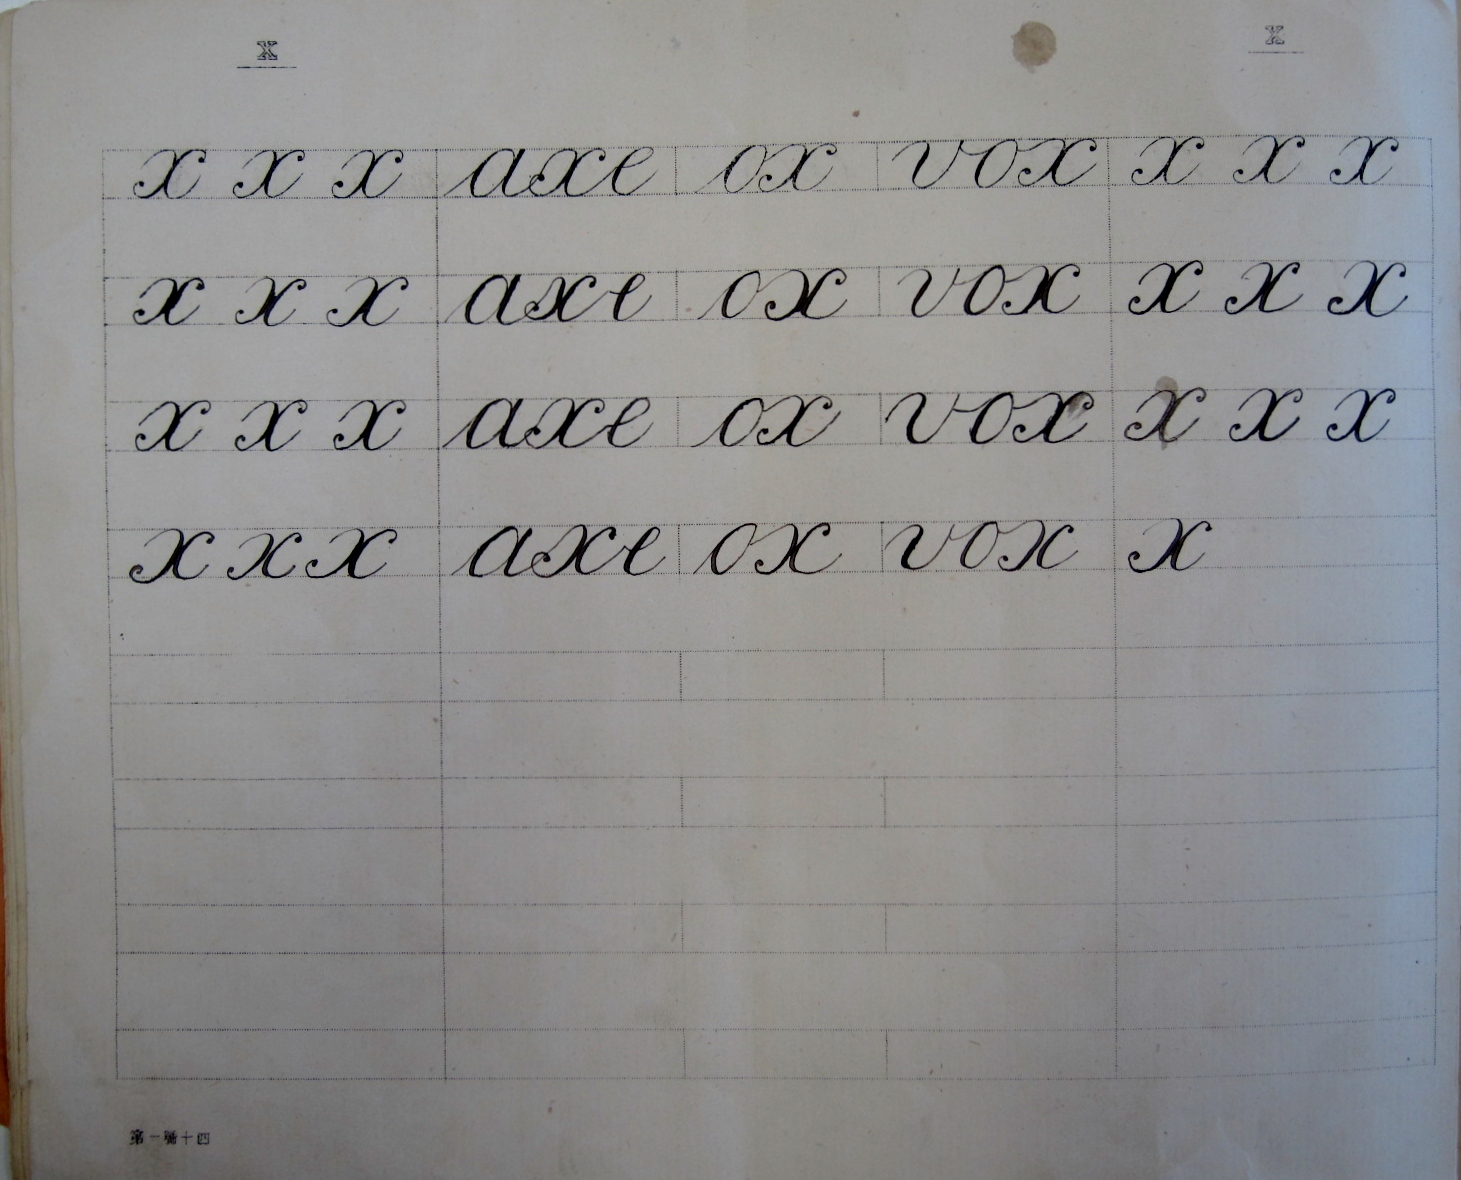 x x
x x x axe ox vox x x x
x x x axe ox vox x x x
x x x axe ox vox x x x
x x x axe ox vox x
第一號十四